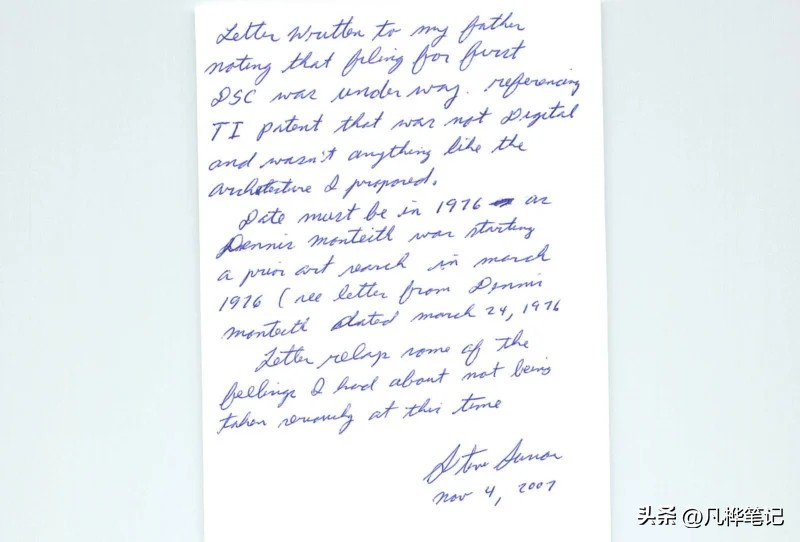 Letter written to my father
noting that filing for first
DSC was under way. referencing
TI patent that was not Digital
and wasn't anything like the
architecture I proposed.
Date must be in 1976 as
Dennis Monteith was starting
a prior art search in march
1976 (see letter from Dennis
monteith dated march 24, 1976
Letter some of the
feelings I had about not being
taken seriously at this time
Steve
Nov 4, 2007
头条 @凡桦笔记